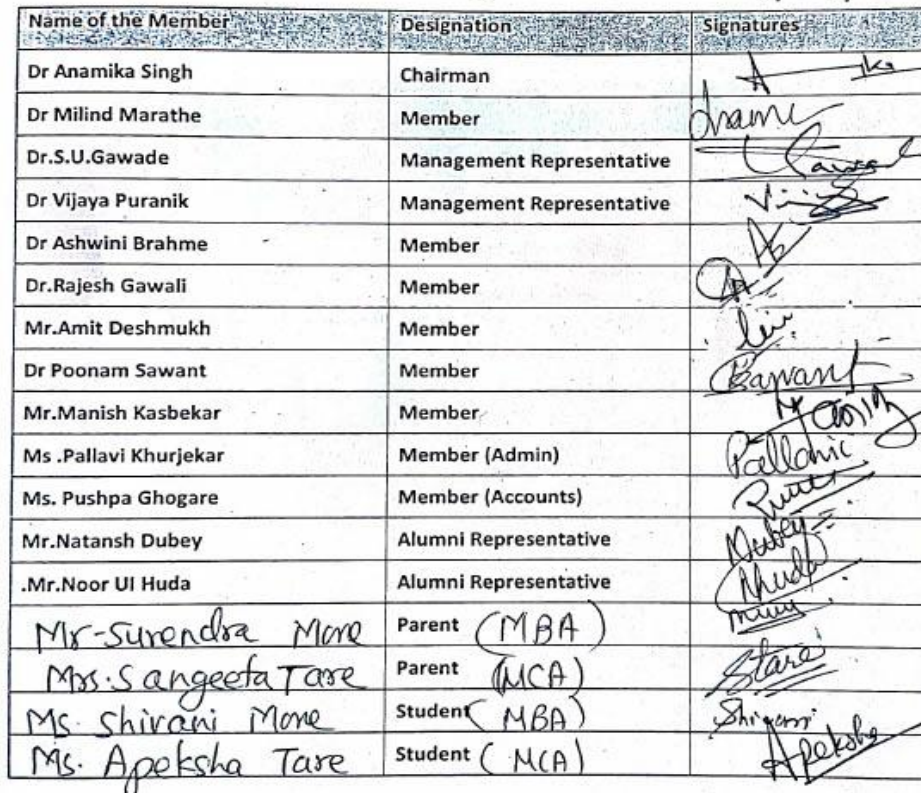 Name of the Member Designation Signatures
Dr Anamika Singh Chairman
Dr Milind Marathe Member
Dr.S.U.Gawade Management Representative
Dr Vijaya Puranik Management Representative
Dr Ashwini Brahme Member
Dr.Rajesh Gawali Member
Mr.Amit Deshmukh Member
Dr Poonam Sawant Member
Mr.Manish Kasbekar Member
Ms .Pallavi Khurjekar Member (Admin) Pallavi
Ms. Pushpa Ghogare Member (Accounts)
Mr.Natansh Dubey Alumni Representative Dubey
.Mr.Noor Ul Huda Alumni Representative Nhuda
Mr-Surendra More Parent (MBA)
Mrs.Sangeeta Tare Parent (MCA) Stare
Ms. Shivani More Student (MBA) Shivani
Ms. Apeksha Tare Student (MCA) Apeksha